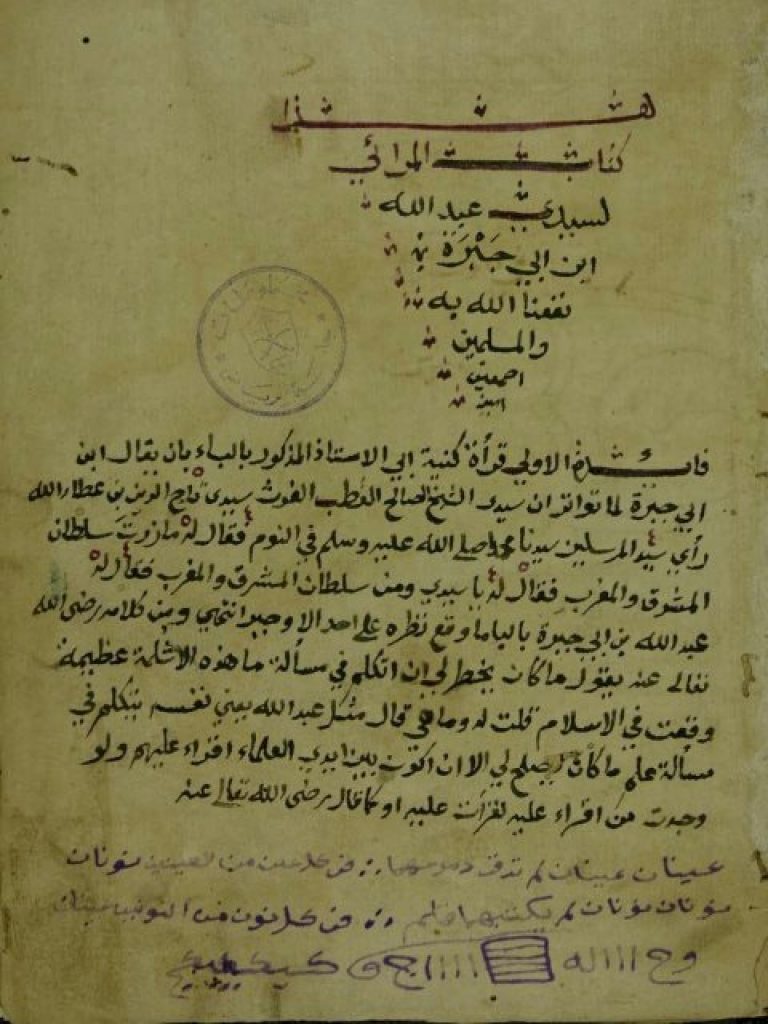 هذا
كتاب المرائي
لسيدي عبد الله
ابن ابي جبرة
نفعنا الله به
والمسلمين
اجمعين
امين
فائدة الاولي قرأة كنية ابي الاستاذ المذكور بالباء بان يقال ابن
ابي جبرة لما تواتر ان سيدي الشيخ الصالح القطب الغوث سيدي تاج الدين بن عطاء الله
رأي سيد المرسلين سيدنا محمد صلي الله عليه وسلم في النوم فقال له ما زرت سلطان
المشرق والمغرب فقال له يا سيدي ومن سلطان المشرق والمغرب فقال له
عبد الله بن ابي جبرة بالباء ما وقع نظره علي احد الا وجبر انتهي ومن كلامه رضي الله
تعالي عنه يقول ما كان يخطر لي ان اتكلم في مسألة ما هذه الا ثلمة عظيمة
وقعت في الاسلام قلت له وما هي قال مثل عبد الله يعني نفسه يتكلم في
مسألة علم ما كان يصلح لي الا ان اكون بين ايدي العلماء اقراء عليهم ولو
وجدت من اقراء عليه لقرأت عليه او كما قال رضي الله تعالي عنه
عينان عينان لم من كل عين من العينين نونان
نونان نونان لم يكتبهما قلم في كل نون من النونين عينان